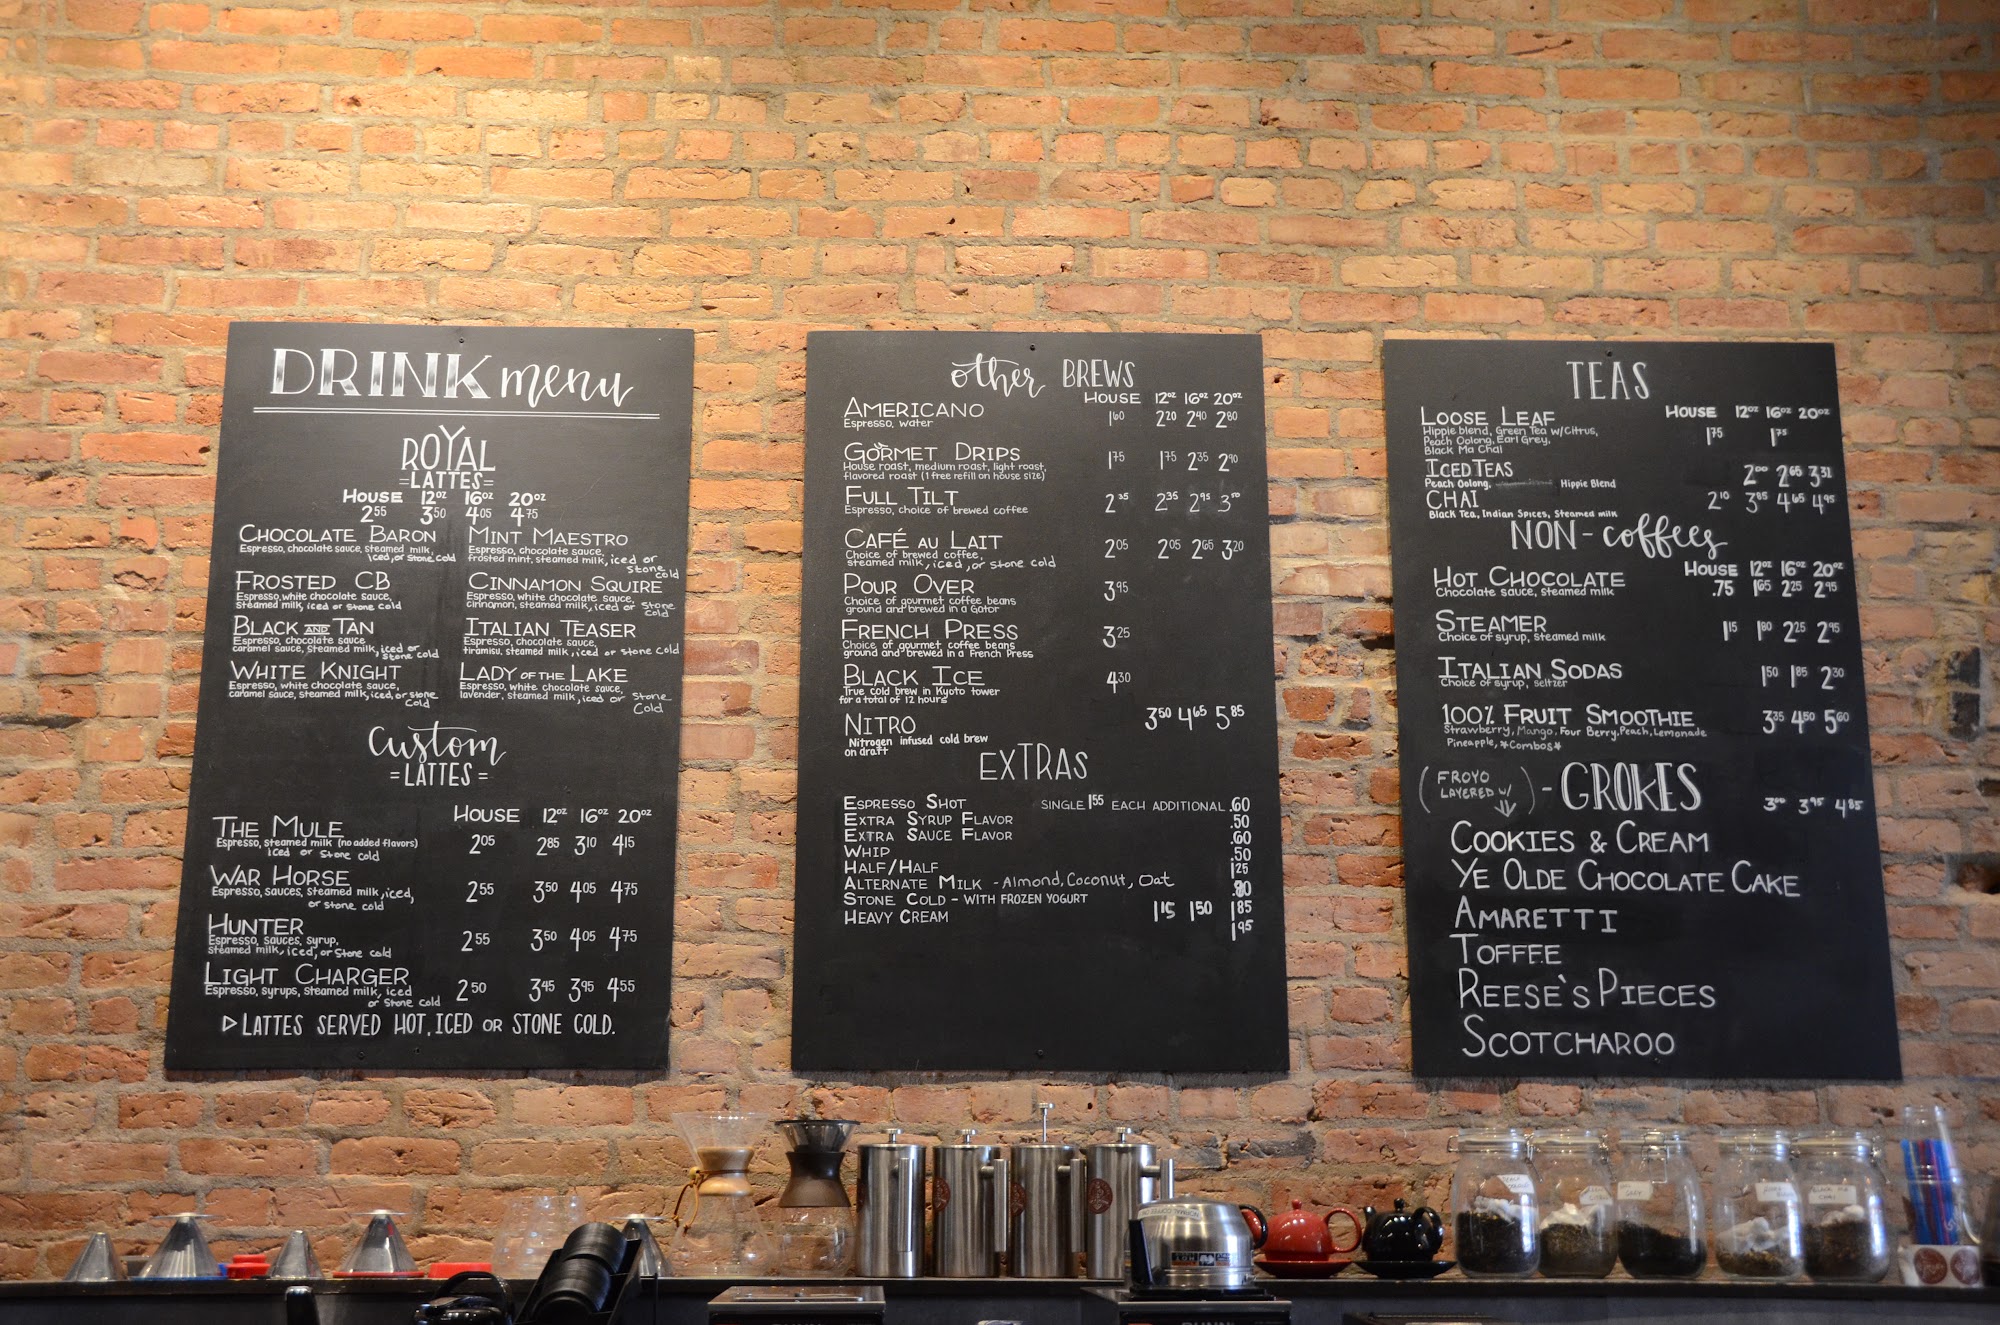 DRINK menu
ROYAL
=LATTES=
HOUSE 12oz 16oz 20oz
2.55 3.50 4.05 4.75
CHOCOLATE BARON
Espresso, chocolate sauce, steamed milk,
iced, or stone cold
MINT MAESTRO
Espresso, chocolate sauce,
frosted mint, steamed milk, iced or
stone
cold
FROSTED CB
Espresso, white chocolate sauce,
steamed milk, iced or stone cold
CINNAMON SQUIRE
Espresso, white chocolate sauce,
cinnamon, steamed milk, iced or stone
cold
BLACK AND TAN
Espresso, chocolate sauce
caramel sauce, steamed milk, iced or
stone cold
ITALIAN TEASER
Espresso, chocolate sauce,
tiramisu, steamed milk, iced or stone cold
WHITE KNIGHT
Espresso, white chocolate sauce,
caramel sauce, steamed milk, iced, or stone
cold
LADY OF THE LAKE
Espresso, white chocolate sauce,
lavender, steamed milk, iced or stone
cold
Custom
=LATTES=
HOUSE 12oz 16oz 20oz
THE MULE 2.05 2.85 3.10 4.15
Espresso, steamed milk (no added flavors)
iced or stone cold
WAR HORSE 2.55 3.50 4.05 4.75
Espresso, sauces, steamed milk, iced,
or stone cold
HUNTER 2.55 3.50 4.05 4.75
Espresso, sauces, syrup,
steamed milk, iced, or stone cold
LIGHT CHARGER 2.50 3.45 3.95 4.55
Espresso, syrups, steamed milk, iced
or stone cold
▷ LATTES SERVED HOT, ICED OR STONE COLD.
other BREWS
HOUSE 12oz 16oz 20oz
AMERICANO 1.60 2.20 2.40 2.80
Espresso, water
GORMET DRIPS 1.75 1.75 2.35 2.90
House roast, medium roast, light roast,
flavored roast (1 free refill on house size)
FULL TILT 2.35 2.35 2.95 3.50
Espresso, choice of brewed coffee
CAFÉ AU LAIT 2.05 2.05 2.65 3.20
Choice of brewed coffee,
steamed milk, iced, or stone cold
POUR OVER 3.95
Choice of gourmet coffee beans
ground and brewed in a Gator
FRENCH PRESS 3.25
Choice of gourmet coffee beans
ground and brewed in a French Press
BLACK ICE 4.30
True cold brew in Kyoto tower
for a total of 12 hours
NITRO 3.50 4.65 5.85
Nitrogen infused cold brew
on draft
EXTRAS
ESPRESSO SHOT SINGLE 1.55 EACH ADDITIONAL .60
EXTRA SYRUP FLAVOR .50
EXTRA SAUCE FLAVOR .60
WHIP .50
HALF/HALF 1.25
ALTERNATE MILK - Almond, Coconut, Oat
STONE COLD - WITH FROZEN YOGURT 1.15 1.50 1.85
HEAVY CREAM 1.95
TEAS
HOUSE 12oz 16oz 20oz
LOOSE LEAF 1.75 1.75
Hippie blend, Green Tea w/Citrus,
Peach Oolong, Earl Grey,
Black Ma Chai
ICED TEAS 2.00 2.65 3.31
Peach Oolong, Hippie Blend
CHAI 2.10 3.85 4.65 4.95
Black Tea, Indian Spices, Steamed milk
NON-coffees
HOUSE 12oz 16oz 20oz
HOT CHOCOLATE .75 1.65 2.25 2.95
Chocolate sauce, steamed milk
STEAMER 1.15 1.80 2.25 2.95
Choice of syrup, steamed milk
ITALIAN SODAS 1.50 1.85 2.30
Choice of syrup, seltzer
100% FRUIT SMOOTHIE 3.35 4.50 5.60
Strawberry, Mango, Four Berry, Peach, Lemonade
Pineapple, *Combos*
(FROYO LAYERED W/) - GROKES 3.00 3.95 4.85
COOKIES & CREAM
YE OLDE CHOCOLATE CAKE
AMARETTI
TOFFEE
REESE'S PIECES
SCOTCHAROO